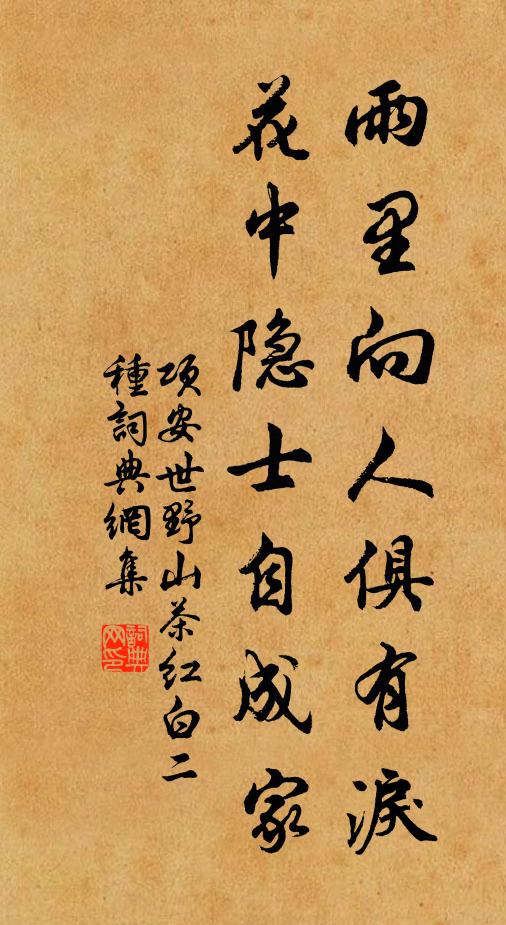 雨里向人俱有淚
花中隐士自成家
项安世野山茶红白二
種詞典網集
詞典网印